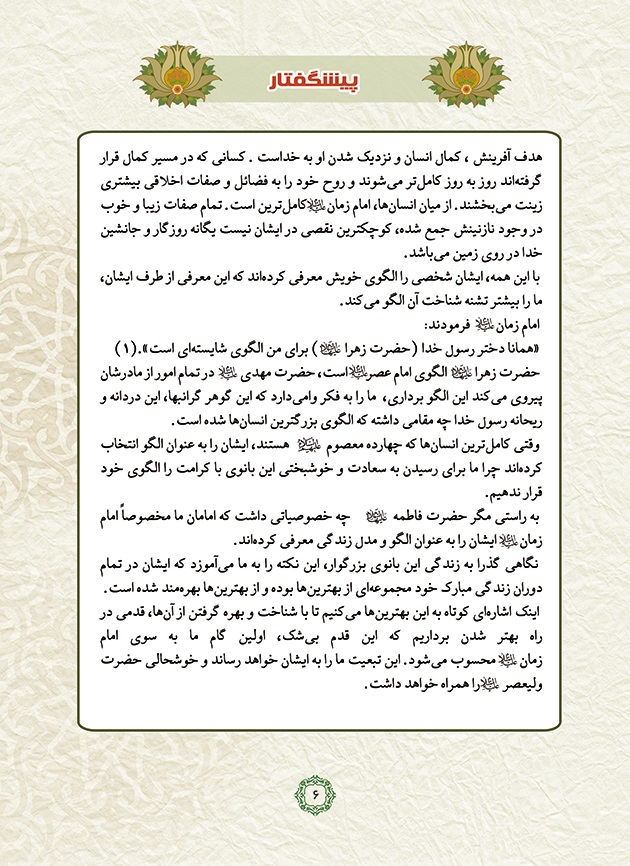 پیشگفتار
هدف آفرینش ، کمال انسان و نزدیک شدن او به خداست . کسانی که در مسیر کمال قرار
گرفته‌اند روز به روز کامل‌تر می‌شوند و روح خود را به فضائل و صفات اخلاقی بیشتری
زینت می‌بخشند. از میان انسان‌ها، امام زمان کامل‌ترین است. تمام صفات زیبا و خوب
در وجود نازنینش جمع شده، کوچکترین نقصی در ایشان نیست یگانه روزگار و جانشین
خدا در روی زمین می‌باشد.
با این همه، ایشان شخصی را الگوی خویش معرفی کرده‌اند که این معرفی از طرف ایشان،
ما را بیشتر تشنه شناخت آن الگو می‌کند.
امام زمان فرمودند:
«همانا دختر رسول خدا (حضرت زهرا ) برای من الگوی شایسته‌ای است».(۱)
حضرت زهرا الگوی امام عصر است، حضرت مهدی در تمام امور از مادرشان
پیروی می‌کند این الگو برداری، ما را به فکر وامی‌دارد که این گوهر گرانبها، این دردانه و
ریحانه رسول خدا چه مقامی داشته که الگوی بزرگترین انسان‌ها شده است.
وقتی کامل‌ترین انسان‌ها که چهارده معصوم هستند، ایشان را به عنوان الگو انتخاب
کرده‌اند چرا ما برای رسیدن به سعادت و خوشبختی این بانوی با کرامت را الگوی خود
قرار ندهیم.
به راستی مگر حضرت فاطمه چه خصوصیاتی داشت که امامان ما مخصوصاً امام
زمان ایشان را به عنوان الگو و مدل زندگی معرفی کرده‌اند.
نگاهی گذرا به زندگی این بانوی بزرگوار، این نکته را به ما می‌آموزد که ایشان در تمام
دوران زندگی مبارک خود مجموعه‌ای از بهترین‌ها بوده و از بهترین‌ها بهره‌مند شده است.
اینک اشاره‌ای کوتاه به این بهترین‌ها می‌کنیم تا با شناخت و بهره گرفتن از آن‌ها، قدمی در
راه بهتر شدن برداریم که این قدم بی‌شک، اولین گام ما به سوی امام
زمان محسوب می‌شود. این تبعیت ما را به ایشان خواهد رساند و خوشحالی حضرت
ولیعصر را همراه خواهد داشت.
۶